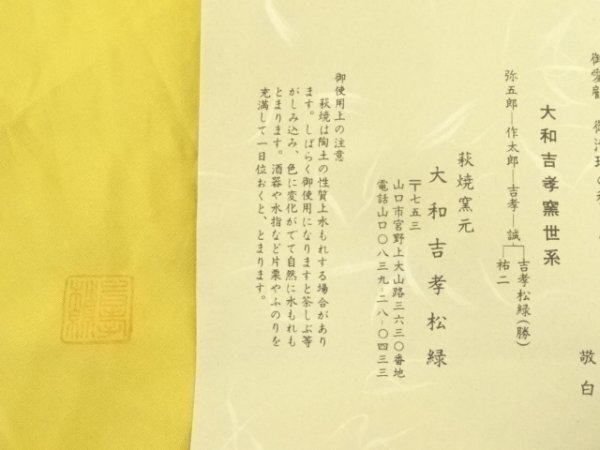 敬白
大和吉孝窯世系
弥五郎―作太郎―吉孝―誠
吉孝松緑(勝)
祐二
萩焼窯元
大和吉孝松緑
〒七五三
山口市宮野上大山路三六三〇番地
電話山口〇八三九-二八-〇四三三
御使用上の注意
萩焼は陶土の性質上水もれする場合があり
ます。しばらく御使用になりますと茶しぶ等
がしみ込み、色に変化がでて自然に水もれも
とまります。酒器や水指など片栗やふのりを
充満して一日位おくと、とまります。